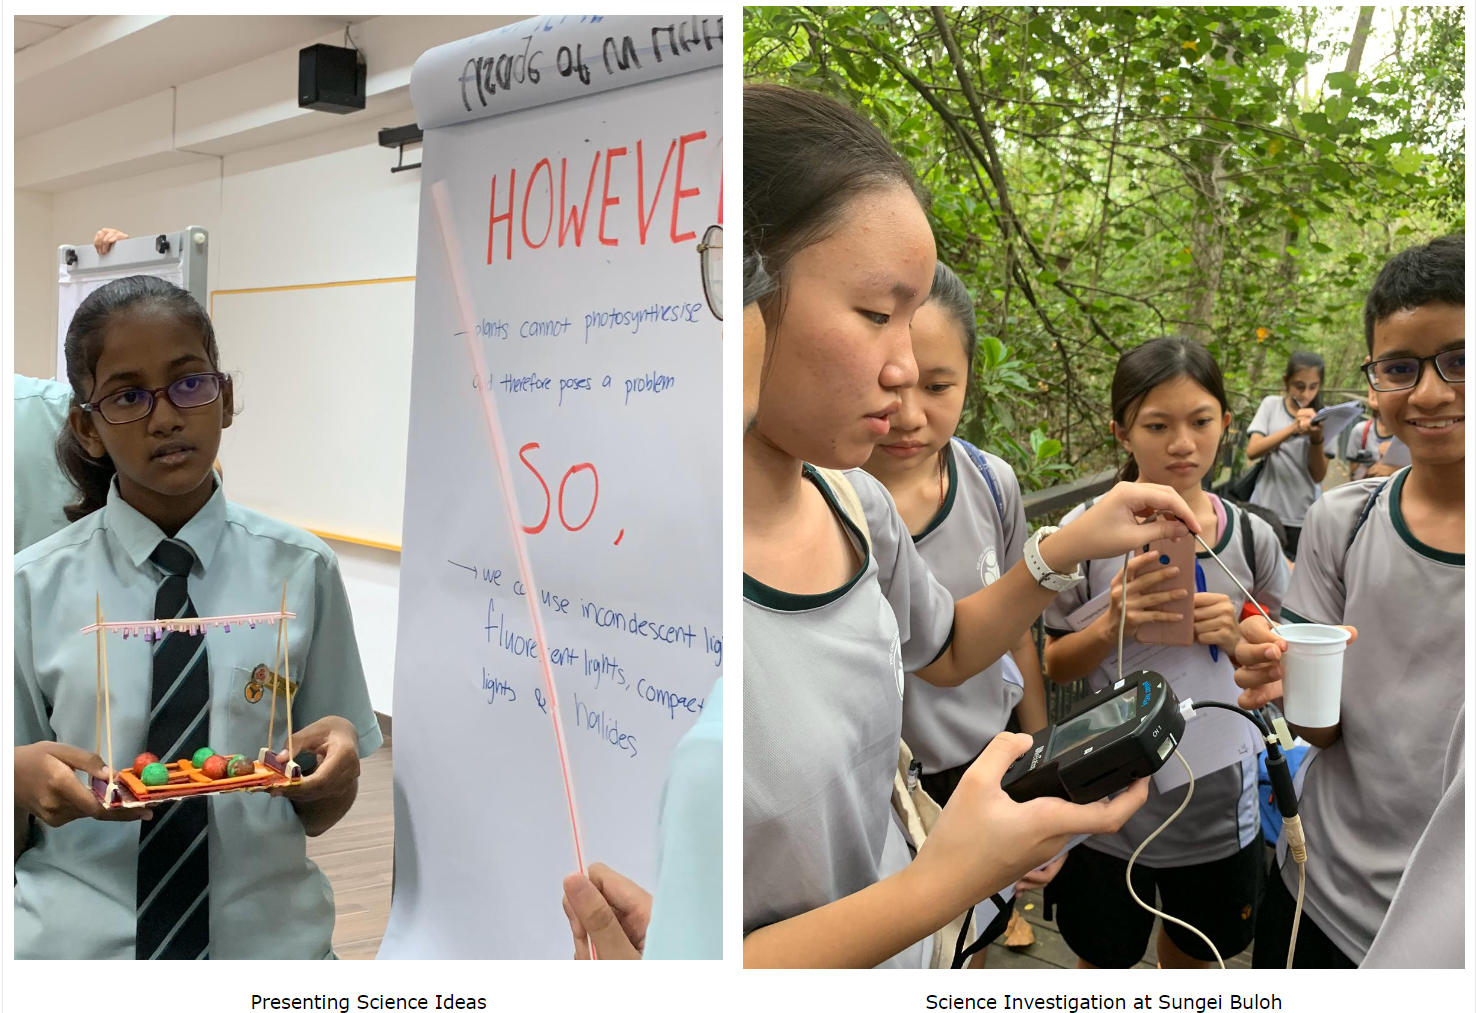 HOWEVE
plants cannot photosynthesise
therefore poses a problem
So,
we use incandescent
lights, compact
lights & halides
CH 1
Presenting Science Ideas
Science Investigation at Sungei Buloh